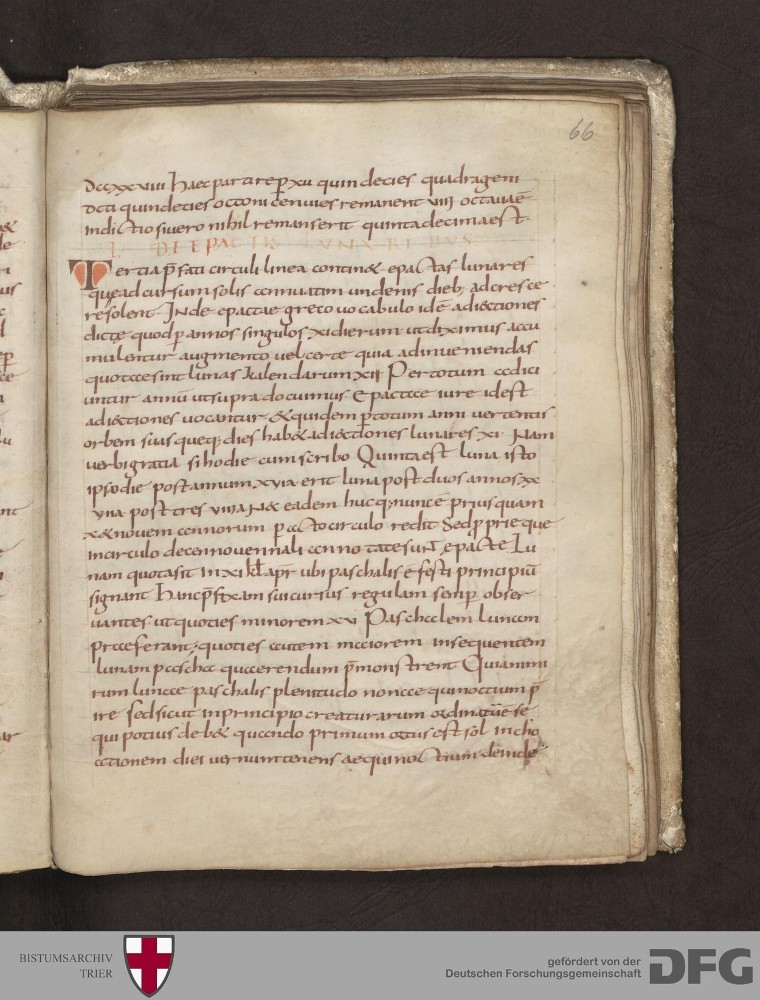 66
dccxxviii haec partire p̄ xu quindecies quadrageni
dcti quindecies octoni cenuies remanent uiii octauaē
indictio si uero nihil remanserit quinta decima est
L DE EPACTIS LUNARIBUS
Tertia p̄fati circuli linea contin& epactas lunares
quae ad cursum solis annuatim undenis dieb; adcresce
re solent Inde epactae greco uocabulo idē adiectiones
dictę quod p̄ annos singulos xi dierum ut diximus accu
mulentur augmento uel certe quia ad inueniendas
quotae sint lunas kalendarum xii Per totum
untur annū ut supra docuimus Epactae iure id est
adiectiones uocantur &quidem p̄ totum anni uertentis
orbem suas queq; dies hab& adiectiones lunares xi Nam
uerbi gratia si hodie cum scribo Quinta est luna isto
ipso die post annum xvia erit luna post duos annos xx
viia post tres
x& nouem annorum p̄acto circulo redit Sed p̄prie que
in circulo decennouennali annotate sunt epacte Lu
nam quota sit In xi kł apr ubi paschalis ē festi principiū
signant hanc p̄fixam sui cursus regulam semp̄ obser
uantes ut quoties minorem xv Paschalem lunam
praeferant; quoties autem maiorem insequentem
lunam pascha quaerendum p̄monstrent Quia nimi
rum lunae paschalis plenitudo non aequinoctium p̄
ire sed sicut in principio creaturarum
qui potius deb& quando primum ortus est sol Incho
ationem diei uernum tenens aequinoctium deinde
BISTUMSARCHIV
TRIER
gefördert von der
Deutschen Forschungsgemeinschaft
DFG